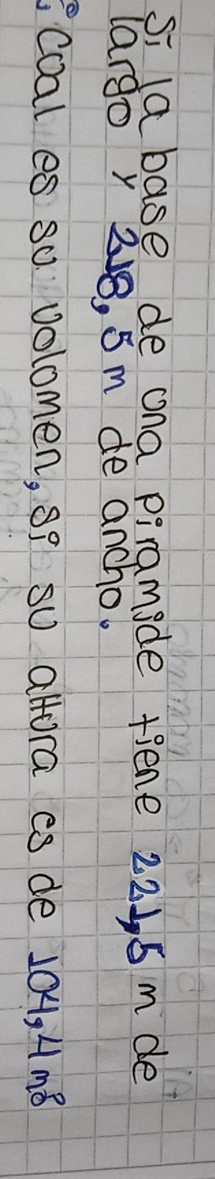 Si la base de una piramide tiene 221,5 m de
largo y 218,5 m de ancho.
¿Coal es su volomen, si su altura es de 104,4 m?